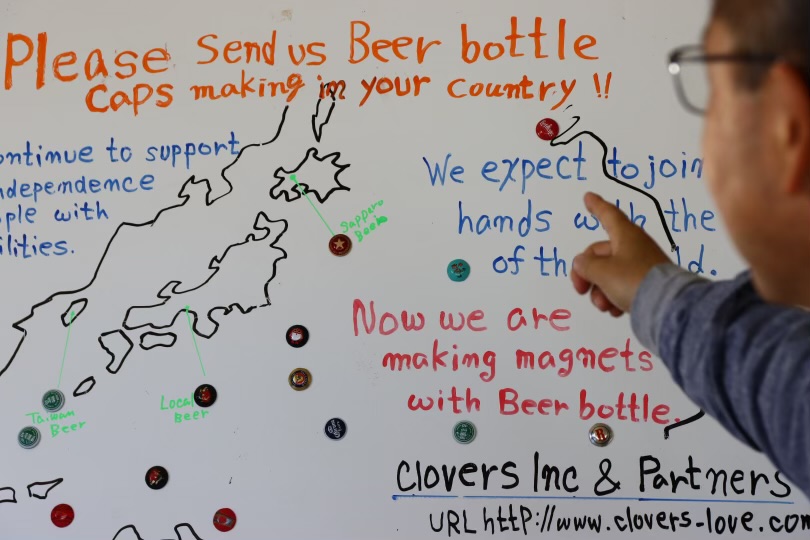 Please Send us Beer bottle
caps making in your country !!
ontinue to support
ndependence
ple with
ilities.
We expect to join
hands with the
of th d.
Sapporo
Beer
Now we are
making magnets
with Beer bottle.
Taiwan
Beer
Local
Beer
Clovers Inc & Partners
URL http://www.clovers-love.com